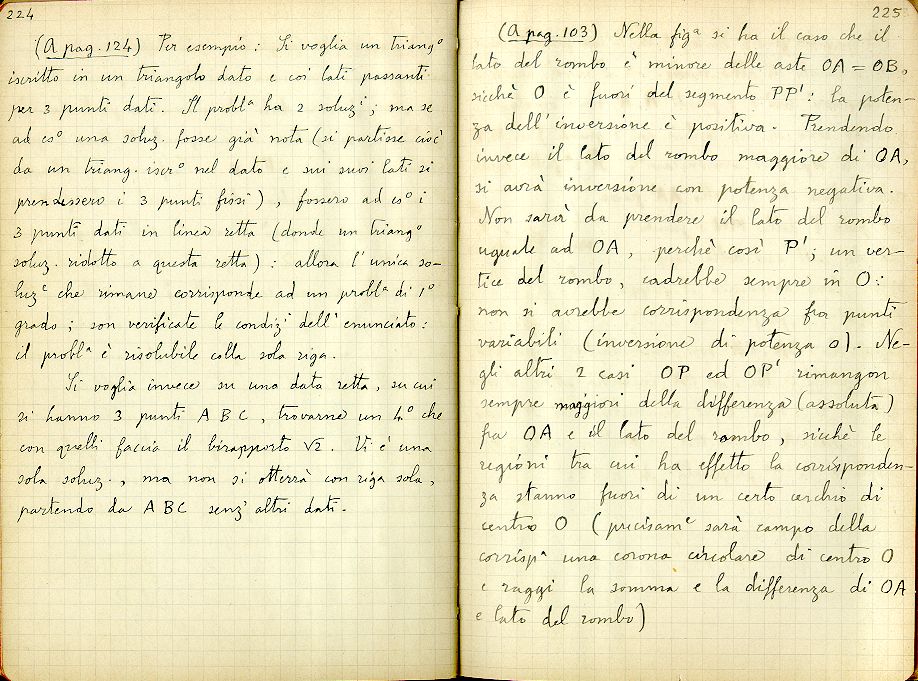 224
(A pag. 124) Per esempio: Si voglia un triangº
iscritto in un triangolo dato e coi lati passanti
per 3 punti dati. Il problª ha 2 soluzⁱ; ma se
ad esº una soluz. fosse già nota (si partisse cioè
da un triang. iscrº nel dato e sui suoi lati si
prendessero i 3 punti fissi), fossero ad esº i
3 punti dati in linea retta (donde un triangº
soluz. ridotto a questa retta): allora l'unica so-
luzᵉ che rimane corrisponde ad un problª di 1º
grado; son verificate le condizⁱ dell'enunciato:
il problª è risolubile colla sola riga.
Si voglia invece su una data retta, su cui
si hanno 3 punti A B C, trovarne un 4º che
con quelli faccia il birapporto √2. Vi è una
sola soluz., ma non si otterrà con riga sola,
partendo da A B C senz'altri dati.
225
(A pag. 103) Nella figª si ha il caso che il
lato del rombo è minore delle aste OA = OB,
sicchè O è fuori del segmento PP': la poten-
za dell'inversione è positiva. Prendendo
invece il lato del rombo maggiore di OA,
si avrà inversione con potenza negativa.
Non sarà da prendere il lato del rombo
uguale ad OA, perchè così P', un ver-
tice del rombo, cadrebbe sempre in O:
non si avrebbe corrispondenza fra punti
variabili (inversione di potenza 0). Ne-
gli altri 2 casi OP ed OP' rimangon
sempre maggiori della differenza (assoluta)
fra OA e il lato del rombo, sicchè le
regioni tra cui ha effetto la corrisponden-
za stanno fuori di un certo cerchio di
centro O (precisamᵉ sarà campo della
corrispª una corona circolare di centro O
e raggi la somma e la differenza di OA
e lato del rombo)